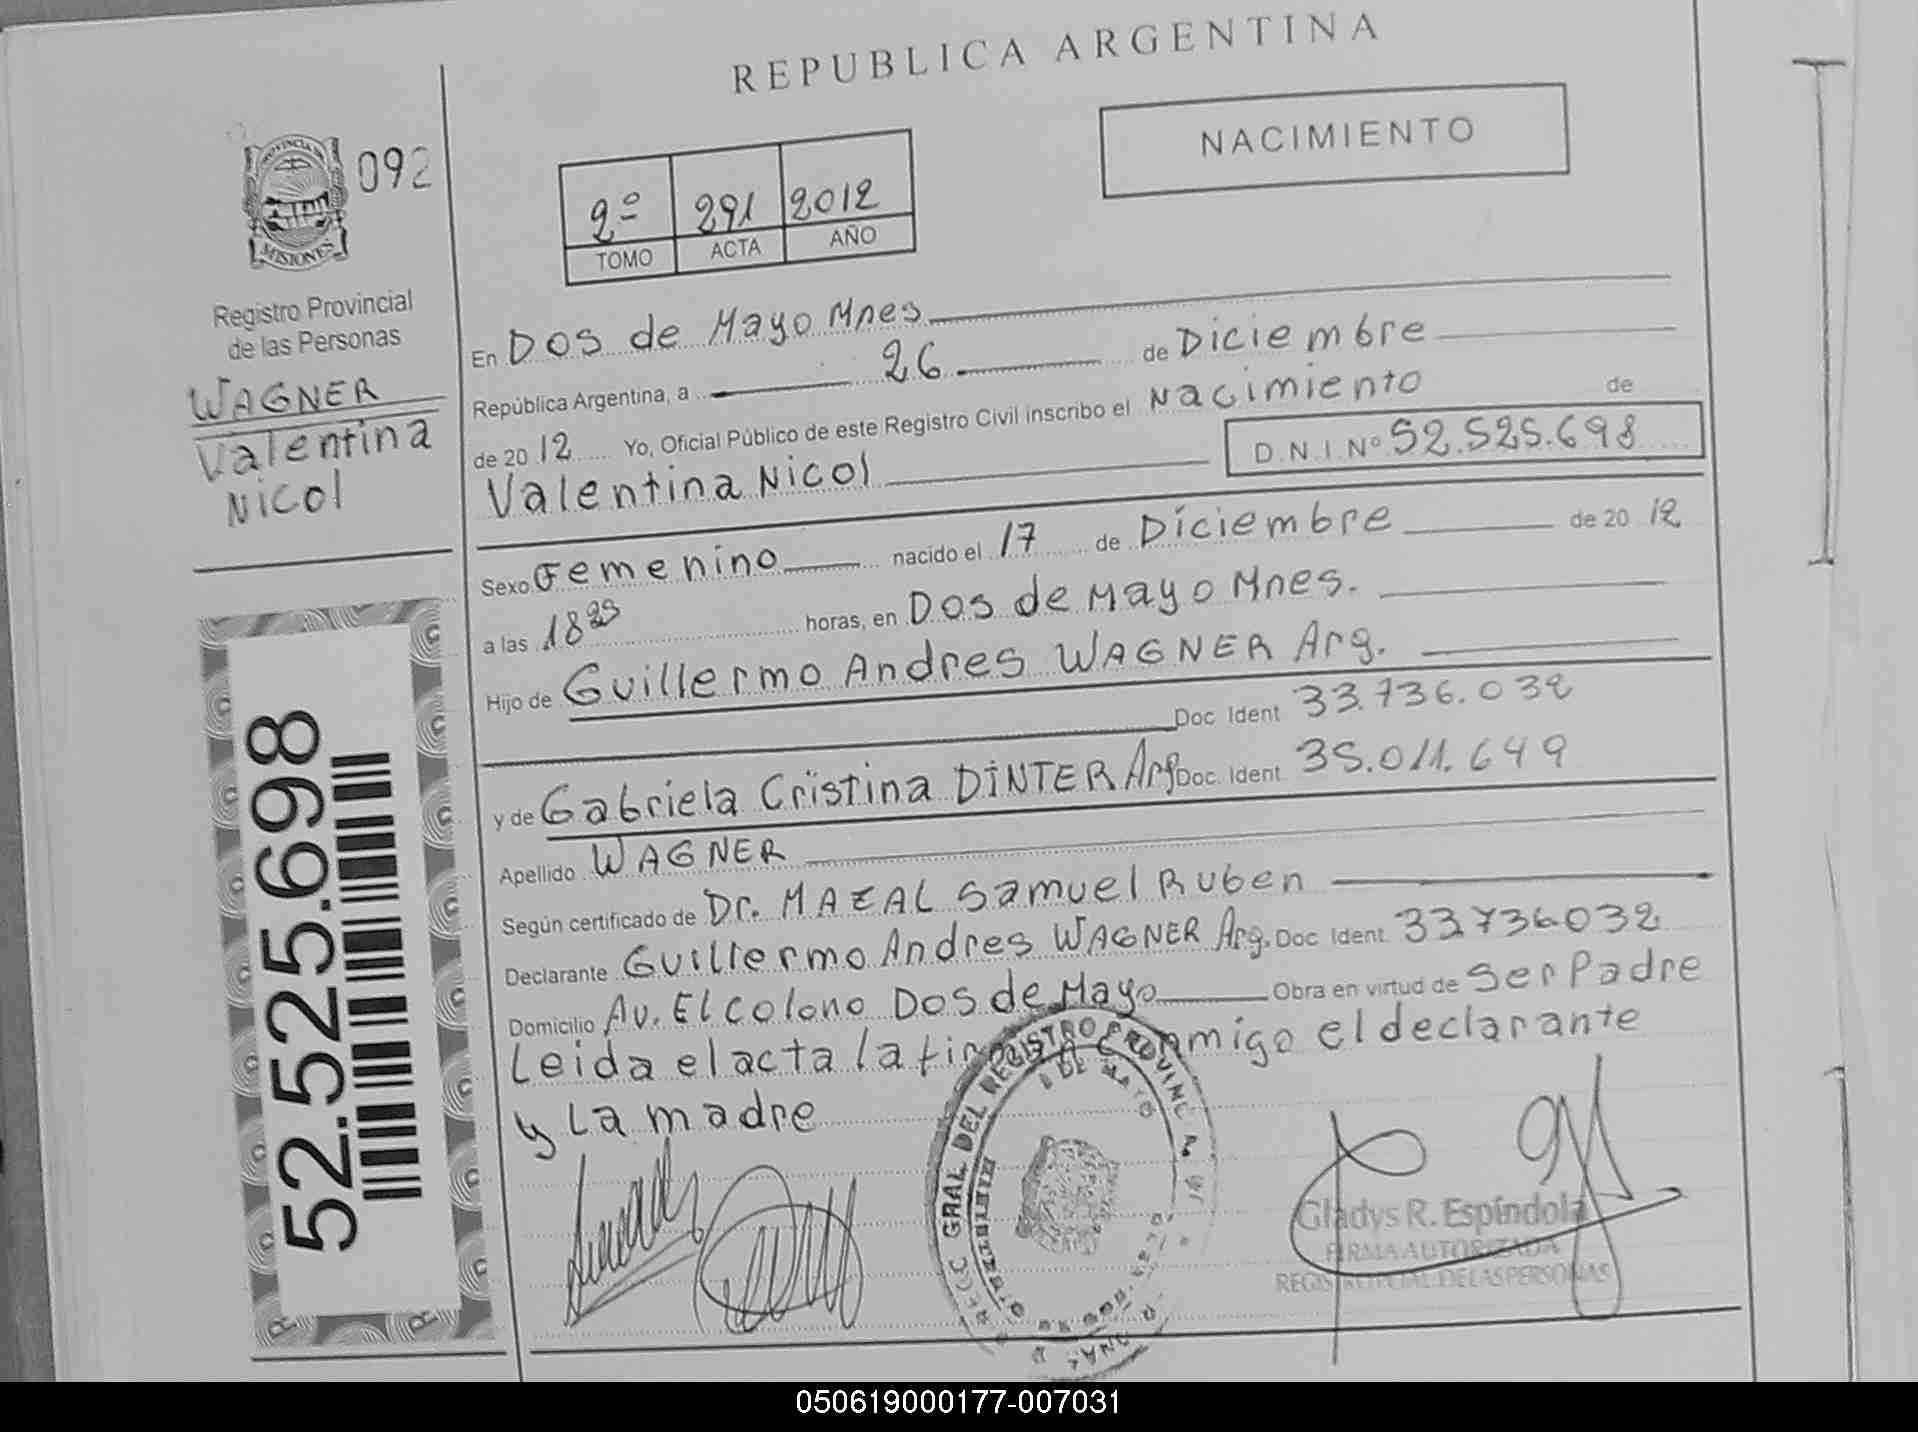 REPUBLICA ARGENTINA
NACIMIENTO
PROVINCIA DE
MISIONES
092
Registro Provincial
de las Personas
WAGNER
Valentina
Nicol
52.525.698
2º 291 2012
TOMO ACTA AÑO
En Dos de Mayo Mnes
República Argentina, a 26 de Diciembre
de 2012 Yo, Oficial Público de este Registro Civil inscribo el Nacimiento de
Valentina Nicol D.N.I.Nº 52.525.698
Sexo Femenino nacido el 17 de Diciembre de 2012
a las 18 horas, en Dos de Mayo Mnes.
Hijo de Guillermo Andres WAGNER Arg.
Doc Ident 33.736.032
y de Gabriela Cristina DINTER Arg Doc. Ident 35.011.649
Apellido WAGNER
Según certificado de Dr. MAZAL Samuel Ruben
Declarante Guillermo Andres WAGNER Arg. Doc Ident. 33736032
Domicilio Av. El colono Dos de Mayo Obra en virtud de Ser Padre
Leida el acta la firma conmigo el declarante
y La madre
GRAL DEL REGISTRO PROVINC
DE MAYO
Gladys R. Espíndola
FIRMA AUTORIZADA
REGISTRO PCIAL DE LAS PERSONAS
050619000177-007031